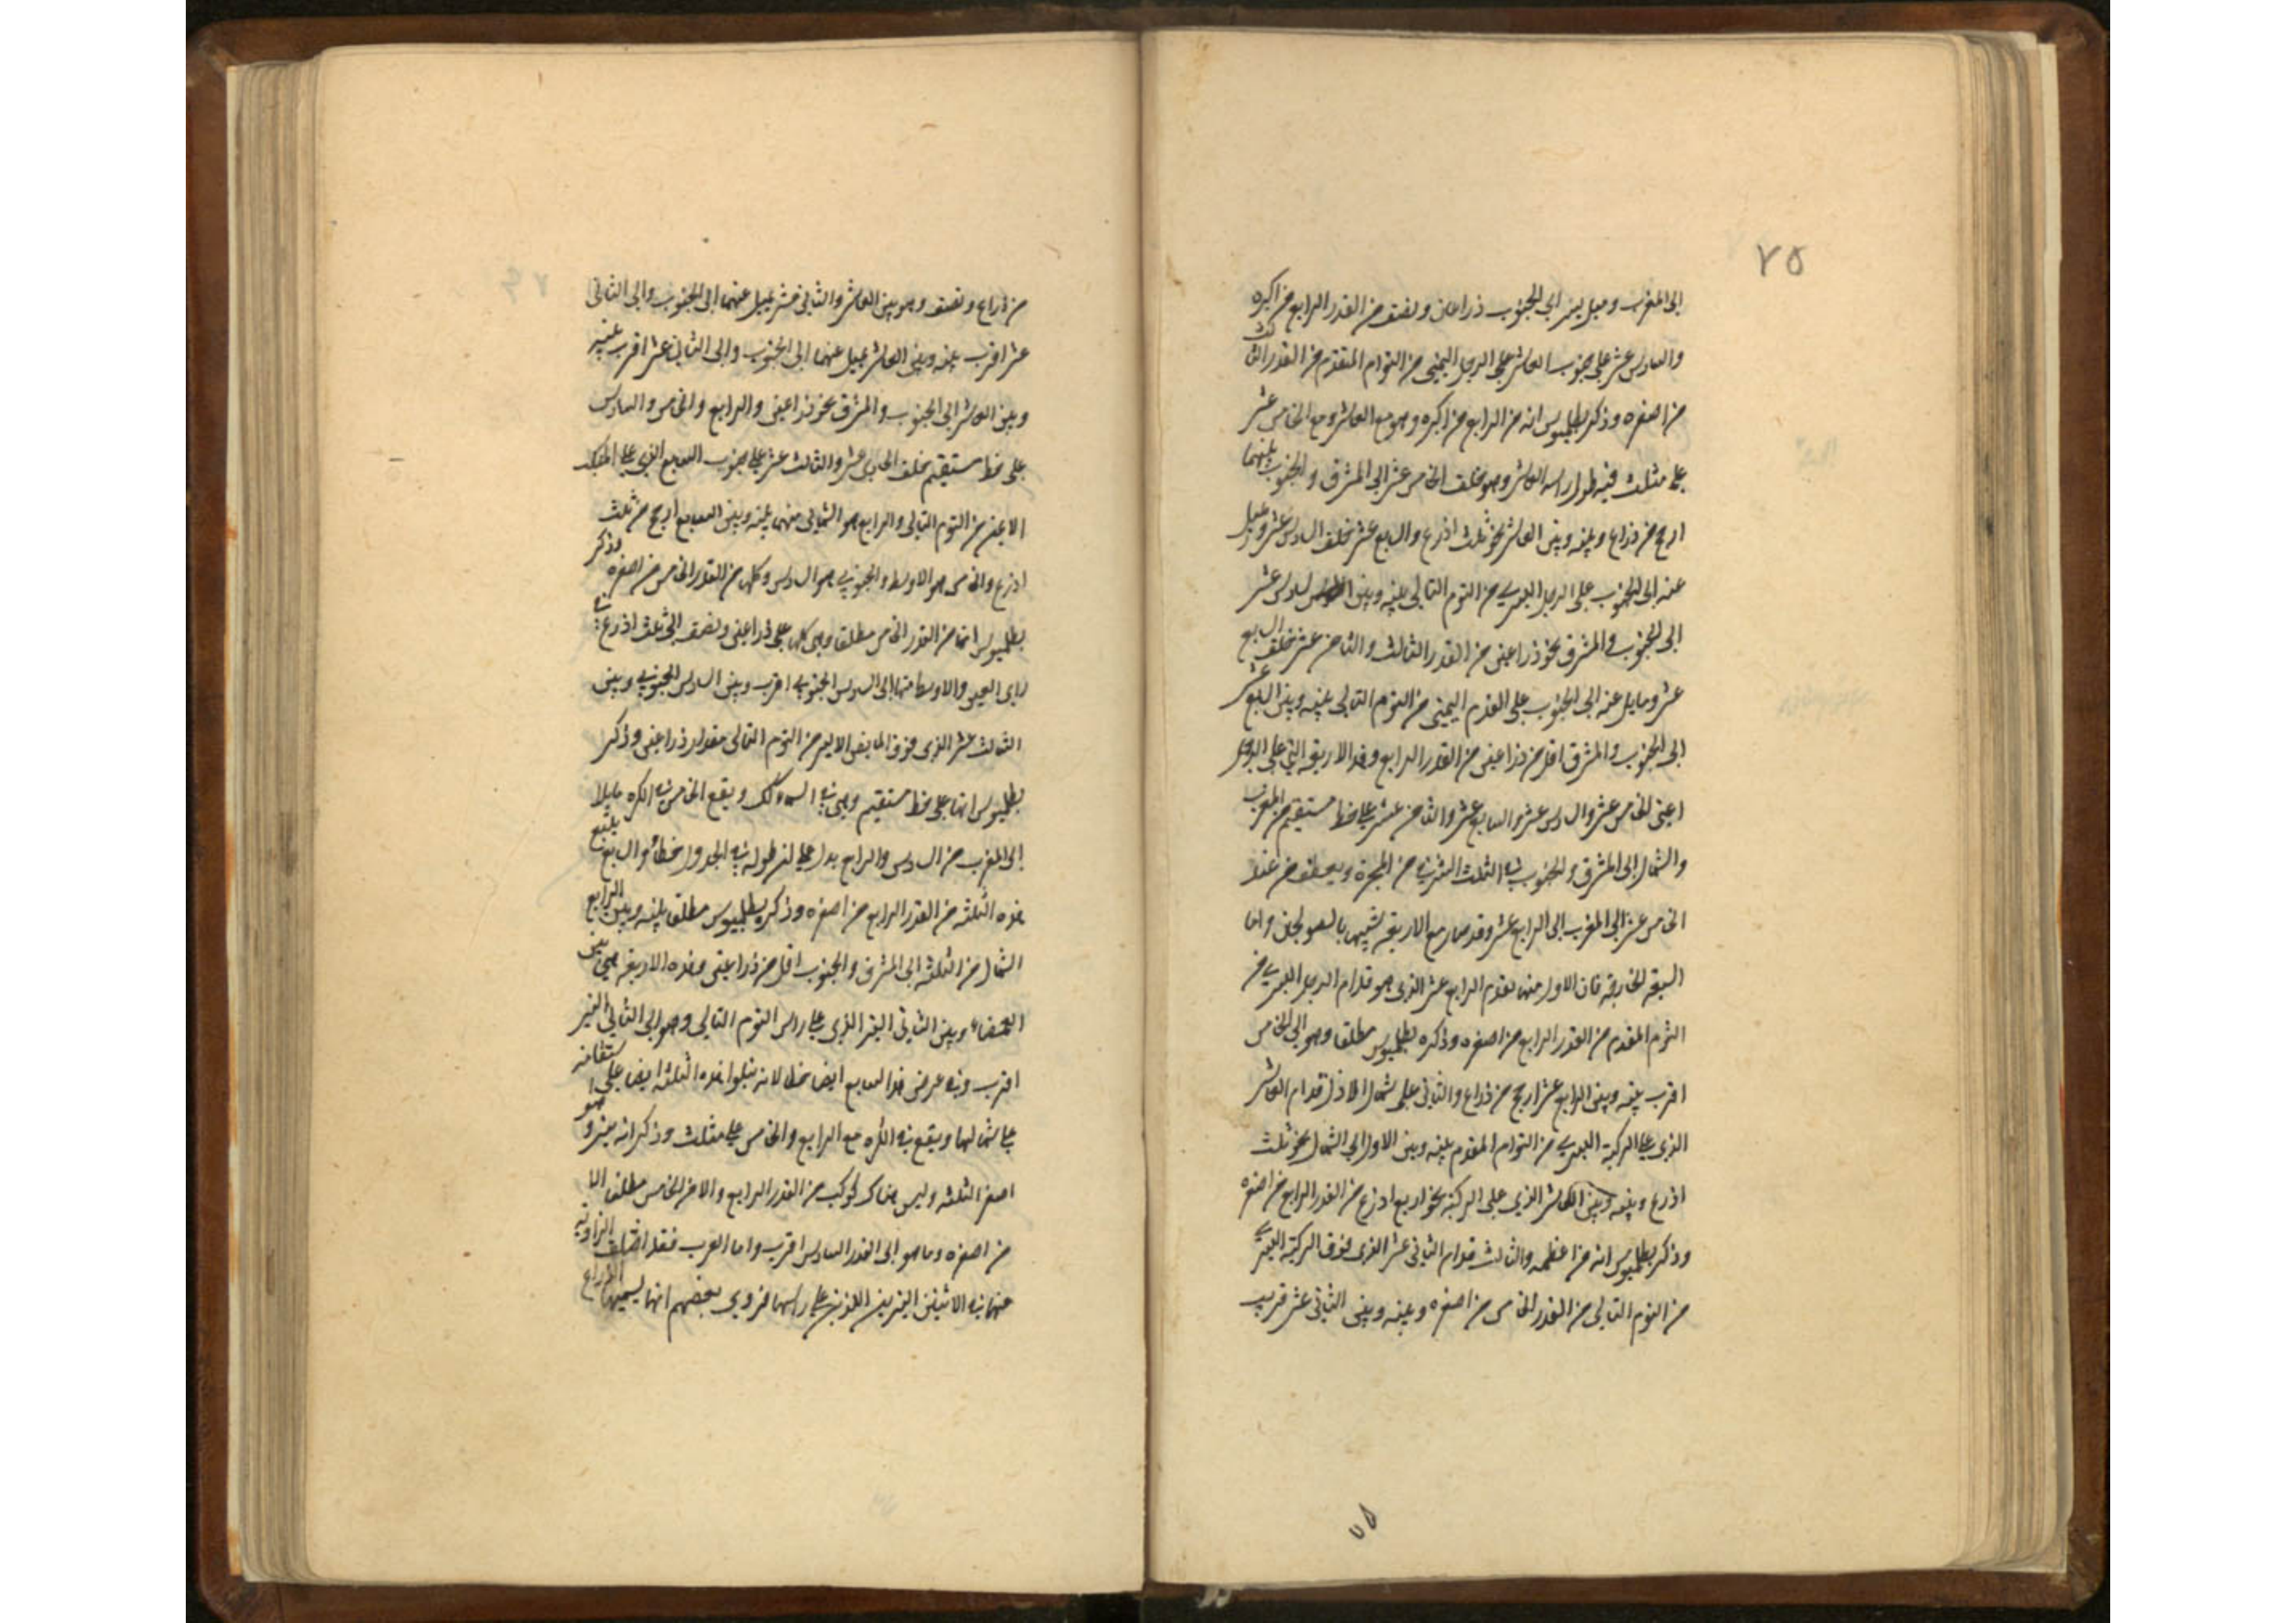 ٧٥
الى المغرب وميل يسير الى الجنوب ذراعان ونصف من القدر الرابع من اكبره
والسادس عشر على جنوب العاشر على الرجل اليمنى من التوام المتقدم من القدر الثالث
من اصغره وذكر بطلميوس انه من الرابع من اكبره وهو مع العاشر ومع الخامس عشر
على مثلث فيه طول راسه العاشر وهو خلف الخامس عشر الى المشرق والجنوب بينهما
ارجح من ذراع وبينه وبين العاشر نحو ثلث اذرع والسابع عشر خلف السادس عشر ويميل
عنه الى الجنوب على الرجل اليسرى من التوم التالي بينه وبين السادس عشر
الى الجنوب والمشرق نحو ذراعين من القدر الثالث والثامن عشر خلف السابع
عشر ومايل عنه الى الجنوب على القدم اليمنى من التوم التالي بينه وبين السابع عشر
الى الجنوب والمشرق اقل من ذراعين من القدر الرابع وهذا الاربعة التي على الرجل
اعنى الخامس عشر والسادس عشر والسابع عشر والثامن عشر على خط مستقيم من المغرب
والشمال الى المشرق والجنوب في الثلث الشرقي من المجرة وينعطف من عند
الخامس عشر الى المغرب الى الرابع عشر وقد صار مع الاربعة شبيها بالصولجان واما
السبعة الخارجة فان الاول منها تقدم الرابع عشر الذي هو قدام الرجل اليسرى من
التوم المقدم من القدر الرابع من اصغره وذكره بطلميوس مطلقا وهو الى الخامس
اقرب بينه وبين الرابع عشر ارجح من ذراع والثاني على شمال الاول قدام العاشر
الذي على الركبة اليسرى من التوام المقدم بينه وبين الاول الى الشمال نحو ثلث
اذرع وبينه وبين العاشر الذي على الركبة نحو اربع اذرع من القدر الرابع من اصغره
وذكر بطلميوس انه من اعظمه والثالث قدام الثاني عشر الذي فوق الركبة اليسرى
من التوم التالي من القدر الخامس من اصغره وبينه وبين الثاني عشر قريب
٧٥
من ذراع ونصف وهو بين العاشر والثاني عشر يميل عنهما الى الجنوب والى الثاني
عشر اقرب بينه وبين العاشر يميل عنهما الى الجنوب والى الثاني عشر اقرب بينه
وبين العاشر الى الجنوب والمشرق نحو ذراعين والرابع والخامس والسادس
على خط مستقيم خلف الحادي عشر والثالث عشر على جنوب السابع الذي على المنكب
الايمن من التوم التالي والرابع هو الشمالي منهما بينه وبين السابع ارجح من ثلث
اذرع والخامس هو الاوسط والجنوبي هو السادس وكلها من القدر الخامس من اصغره وذكر
بطلميوس انها من القدر الخامس مطلقا وهي كلها على ذراعين ونصف الى ثلث اذرع في
راى العين والاوسط منها الى السادس الجنوبي اقرب وبين السادس الجنوبي وبين
الثالث عشر الذي فوق المابض الايسر من التوم التالي مقدار ذراعين وذكر
بطلميوس انها على خط مستقيم وهي في السماء كذلك ويقع الخامس في الكره مايلا
الى المغرب من السادس والرابع يدل على ان طوله في الجدول خطأ والسابع يتبع
هذه الثلثة من القدر الرابع من اصغره وذكره بطلميوس مطلقا بينه وبين الرابع
الشمال من الثلثة الى المشرق والجنوب اقل من ذراعين وهذه الاربعة هي بين
الغميصاء وبين الثاني النير الذي على راس التوم التالي وهو الى الثاني النير
اقرب وفي عرض هذا السابع ايضا خطا لانه يتلوا هذه الثلثة ايضا على استقامة
على شمالها ويقع في الكره مع الرابع والخامس على مثلث وذكر انه نير وهو
اصغر الثلثه وليس هناك كوكب من القدر الرابع والا من الخامس مطلقا الا
من اصغره وما هو الى القدر السادس اقرب واما العرب فقد اختلف الرواية
عنها في الاثنين النيرين اللذين على راسهما فروى بعضهم انها يسميها الذراع